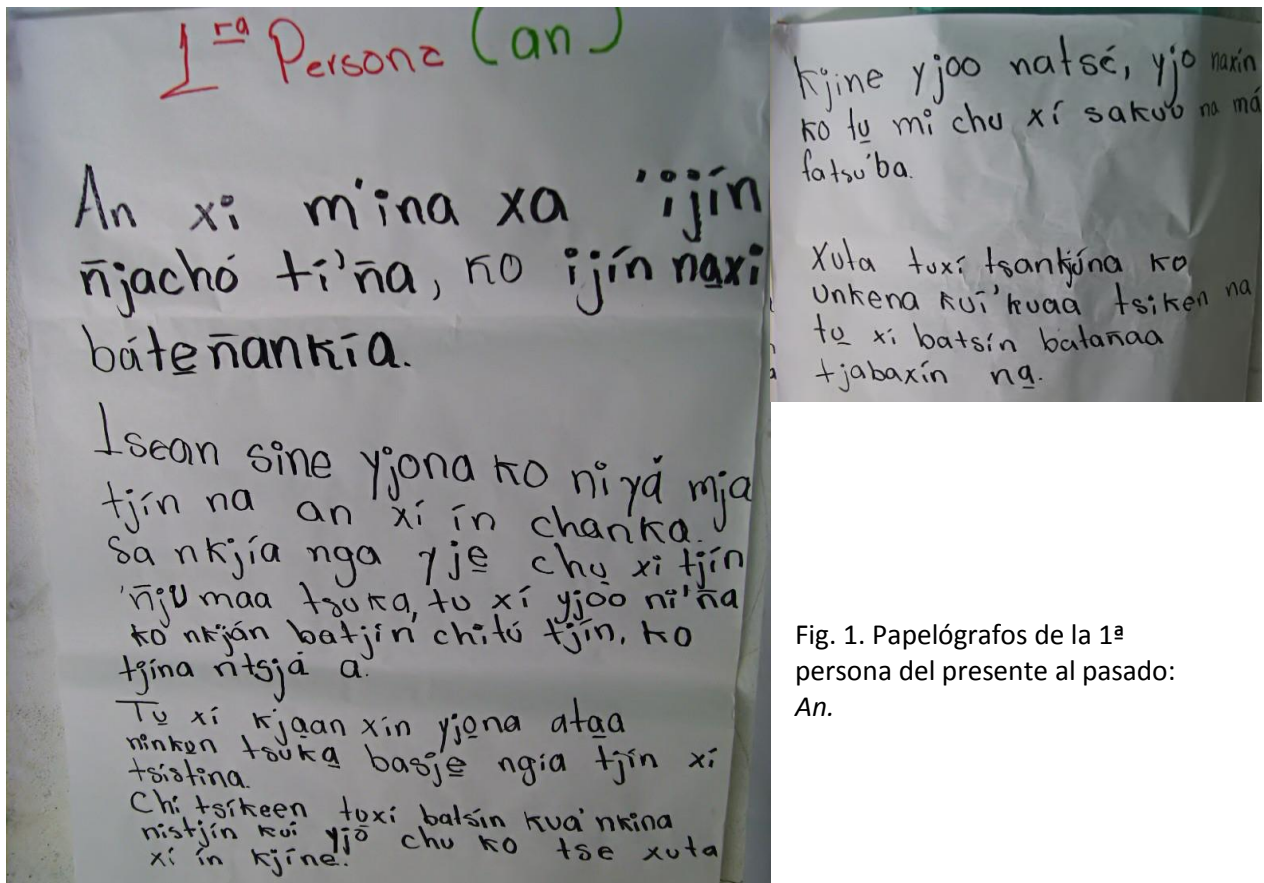 1ra Persona (an)
An xi m'ina xa 'ijín
ñjachó tí'ña, ko ijín na̱xi
báte̱ñankía.
Isean sine yjona ko ni yá mja
tjín na an xí ín chanka.
Sa nkjía nga yje̱ chu̱ xi tjín
'ñju maa tsuka, tu xí yjoo ni'ña
ko nkján batjín chitú tjín, ko
tjína ntsjá a.
Tu̱ xí kja̱an xín yjo̱na ata̱a
ninko̱n tsuka̱ basje̱ ngía tjín xí
tsístina.
Chi tsíkeen tu̱xí batsín kua'nkina
nistjín kuí yjo̱ chu ko tse xuta
xí ín kjíne.
kjine yjoo natsé, yjo naxín
ko tu̱ mi chu xí sakuo na má
fatsu'ba.
Xuta tuxí tsankjúna ko
unkena kuí'kuaa tsiken na
tu̱ xi batsín batañaa
tjabaxín na̱.
Fig. 1. Papelógrafos de la 1ª
persona del presente al pasado:
An.